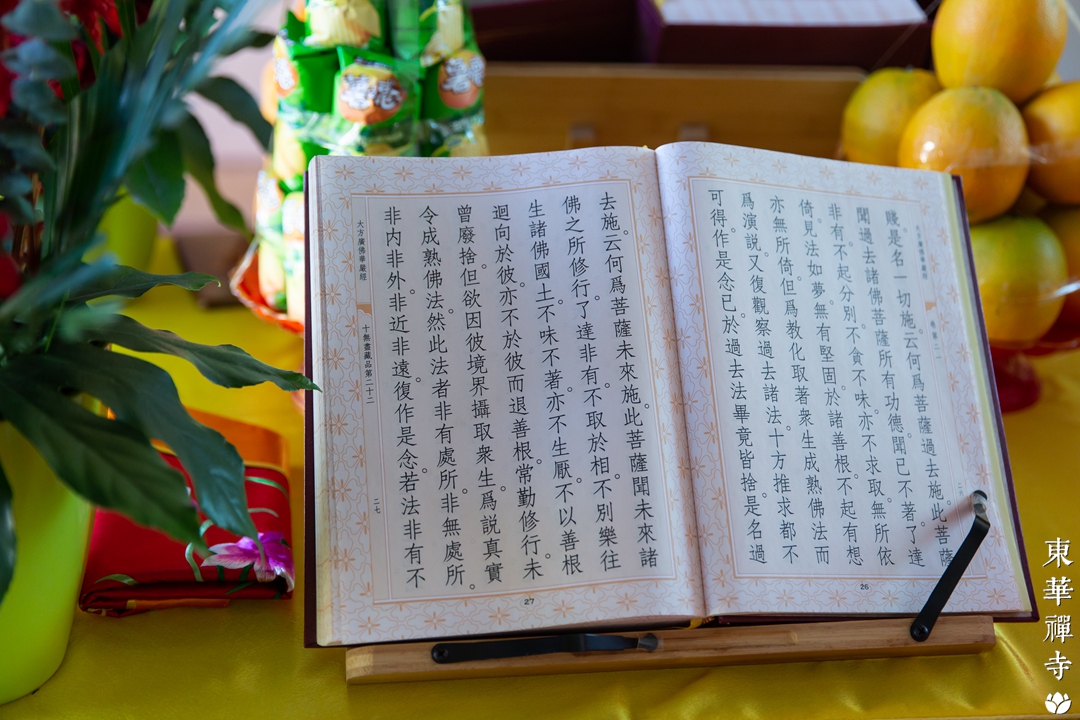 大方廣佛華嚴經
賤。是名一切施。云何爲菩薩過去施。此菩薩
聞過去諸佛菩薩所有功德。聞已不著。了達
非有。不起分別。不貪不味。亦不求取。無所依
倚。見法如夢。無有堅固。於諸善根。不起有想
亦無所倚。但爲教化取著衆生。成熟佛法。而
爲演說。又復觀察過去諸法。十方推求。都不
可得。作是念已。於過去法。畢竟皆捨。是名過
26
去施。云何爲菩薩未來施。此菩薩聞未來諸
佛之所修行。了達非有。不取於相。不別樂往
生諸佛國土。不味不著。亦不生厭。不以善根
迴向於彼。亦不於彼而退善根。常勤修行。未
曾廢捨。但欲因彼境界。攝取衆生。爲說真實
令成熟佛法。然此法者。非有處所。非無處所。
非內非外。非近非遠。復作是念。若法非有。不
大方廣佛華嚴經
十無盡藏品第二十二
二七
27
東華禪寺